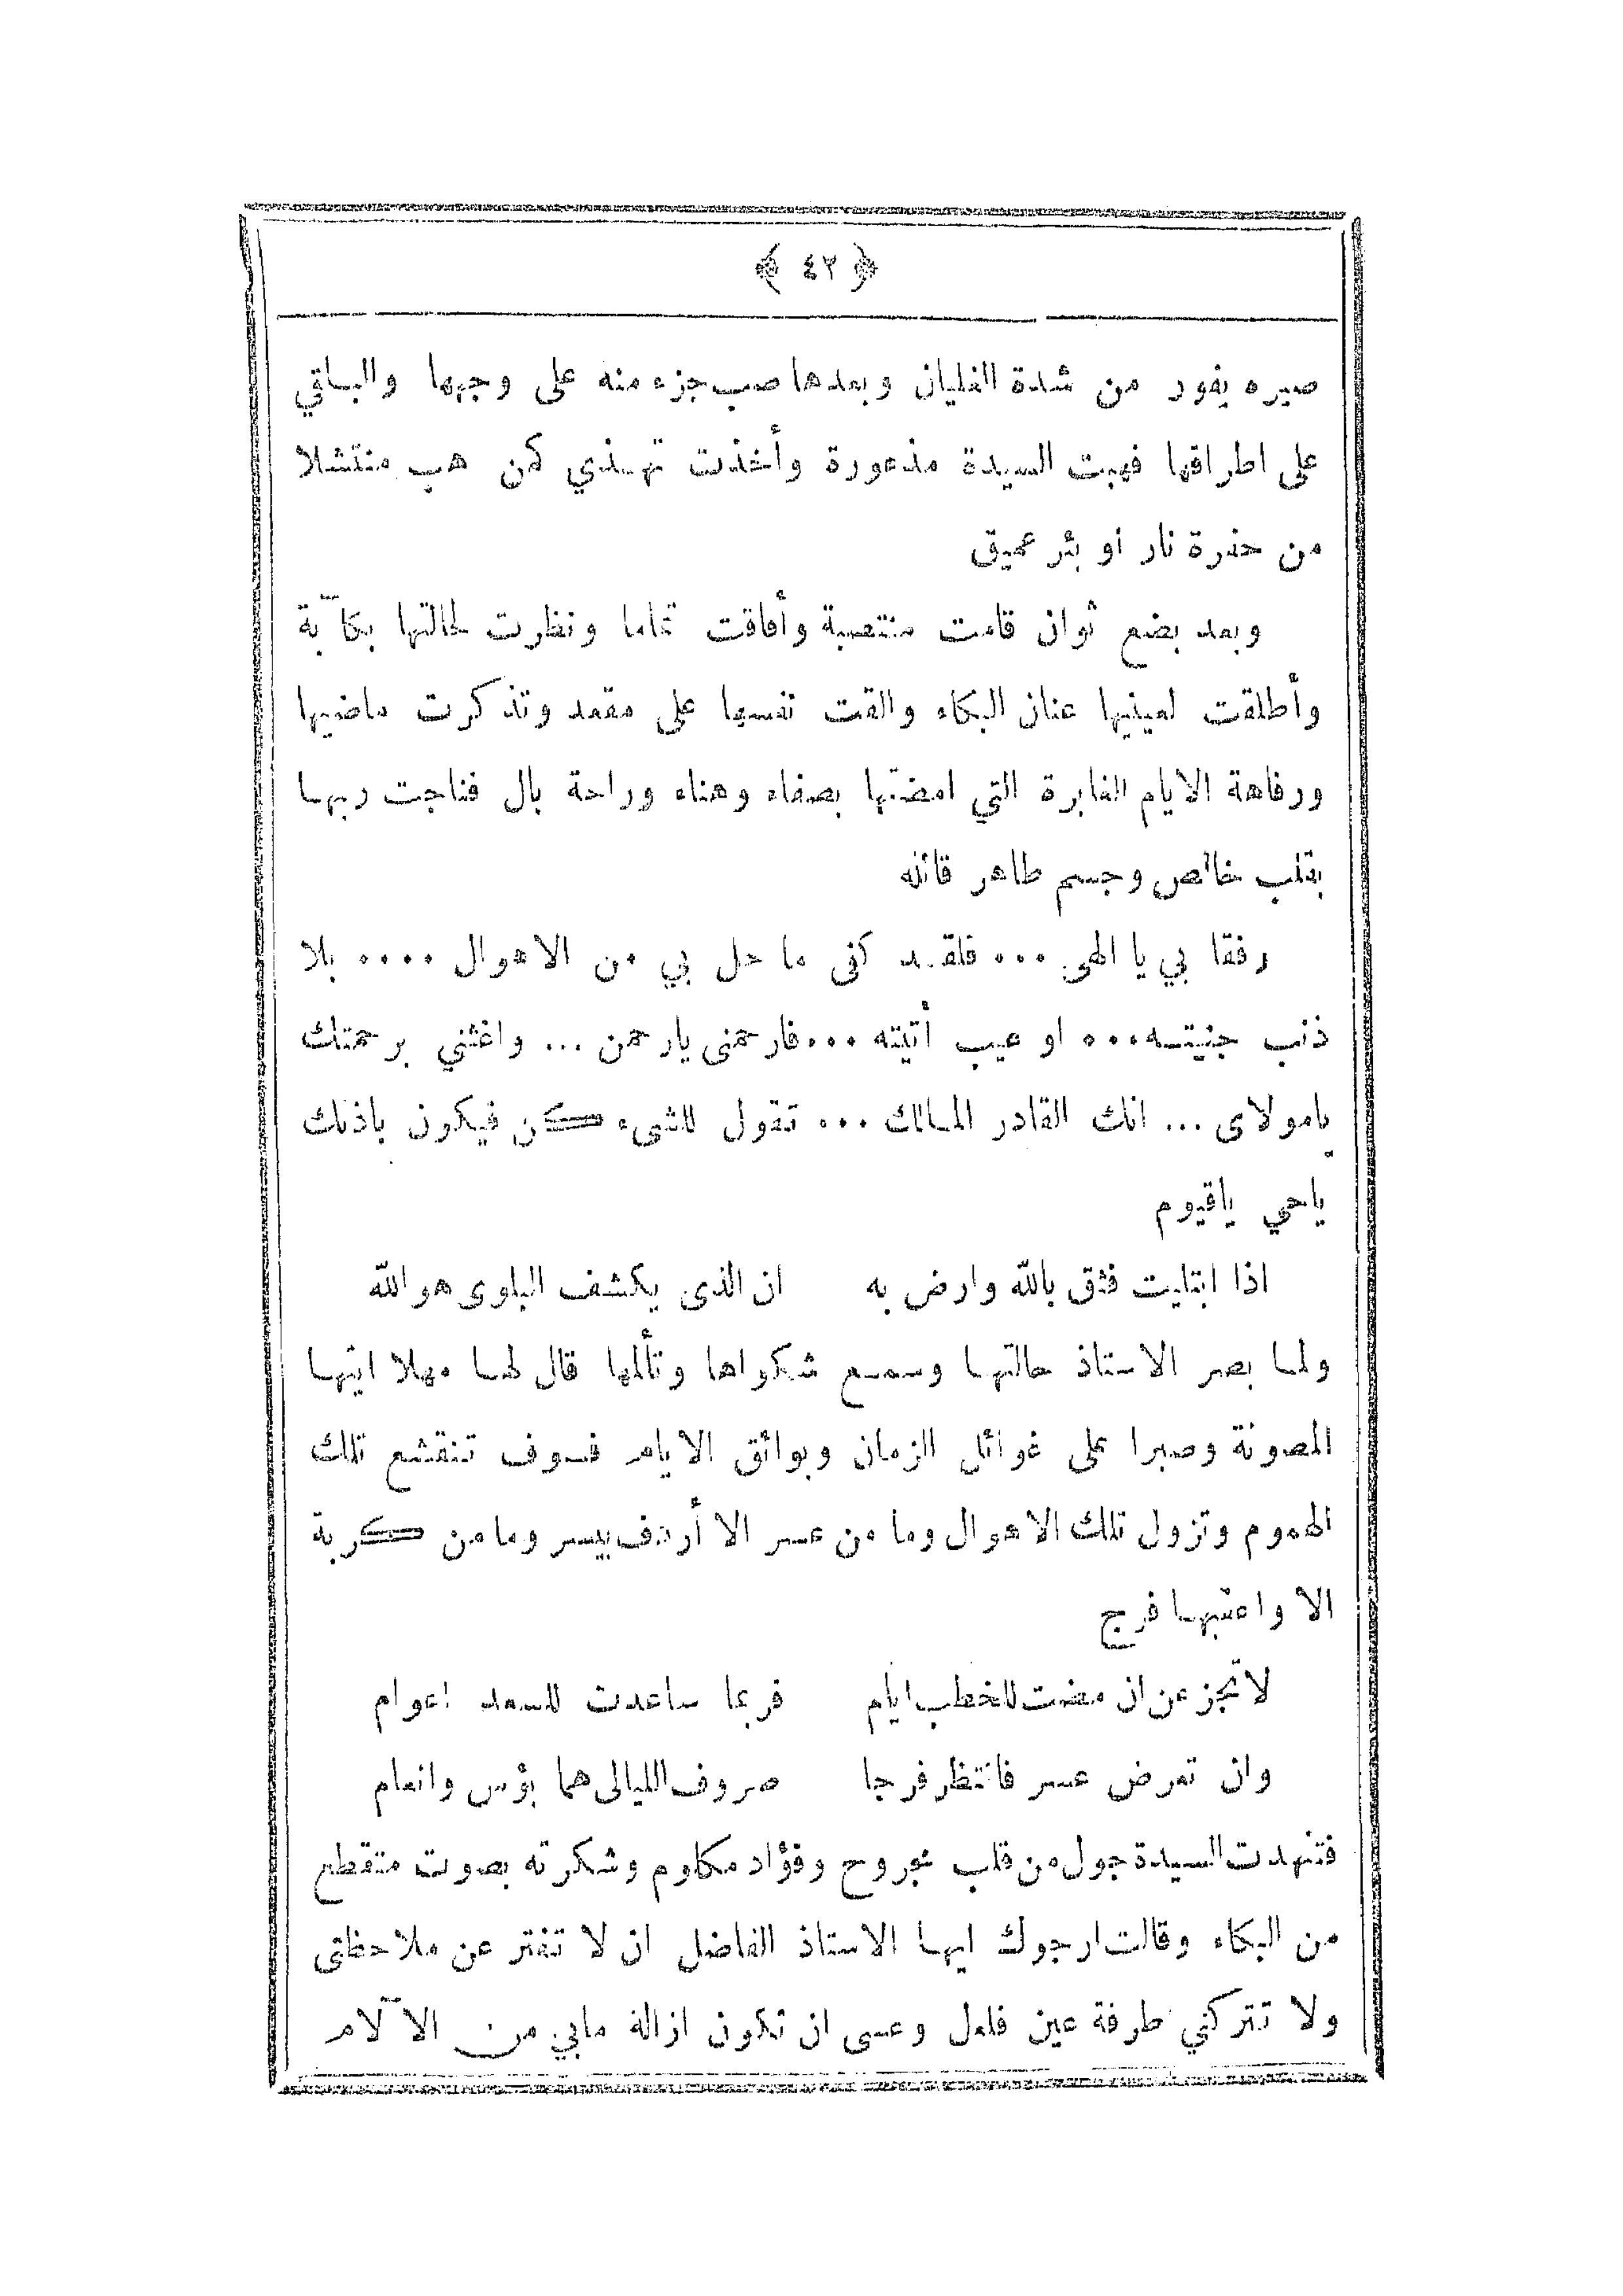 ﴿ ٤٢ ﴾
صيره يفور من شدة الغليان وبعدها صب جزء منه على وجهها والباقي
على اطرافها فهبت السيدة مذعورة وأخذت تهذي كمن هب منتشلا
من حفرة نار او بئر عميق
وبعد بضع ثوان قامت منتصبة وأفاقت تماما ونظرت لحالتها بكآبة
وأطلقت لعينيها عنان البكاء والقت نفسها على مقعد وتذكرت ماضيها
ورفاهة الايام الغابرة التي امضتها بصفاء وهناء وراحة بال فناجت ربها
بقلب خالص وجسم طاهر قائلة
رفقا بي يا الهى ... فلقد كفى ما حل بي من الاهوال .... بلا
ذنب جنيته ... او عيب أتيته ... فارحمنى يارحمن ... واغثني برحمتك
يامولاى ... انك القادر المالك ... تقول للشيء كن فيكون باذنك
ياحي ياقيوم
اذا ابتليت فثق بالله وارض به ان الذى يكشف البلوى هو الله
ولما بصر الاستاذ حالتها وسمع شكواها وتألمها قال لها مهلا ايتها
المصونة وصبرا على غوائل الزمان وبوائق الايام فسوف تنقشع تلك
الهموم وتزول تلك الاهوال وما من عسر الا أردف بيسر وما من كربة
الا واعقبها فرج
لاتجزعن ان مضت للخطب ايام فربما ساعدت للسعد اعوام
وان تعرض عسر فانتظر فرجا صروف الليالى هما بؤس وانعام
فتنهدت السيدة جول من قلب مجروح وفؤاد مكلوم وشكرته بصوت متقطع
من البكاء وقالت ارجوك ايها الاستاذ الفاضل ان لا تفتر عن ملاحظتى
ولا تتركني طرفة عين فلعل وعسى ان تكون ازالة مابي من الآلام